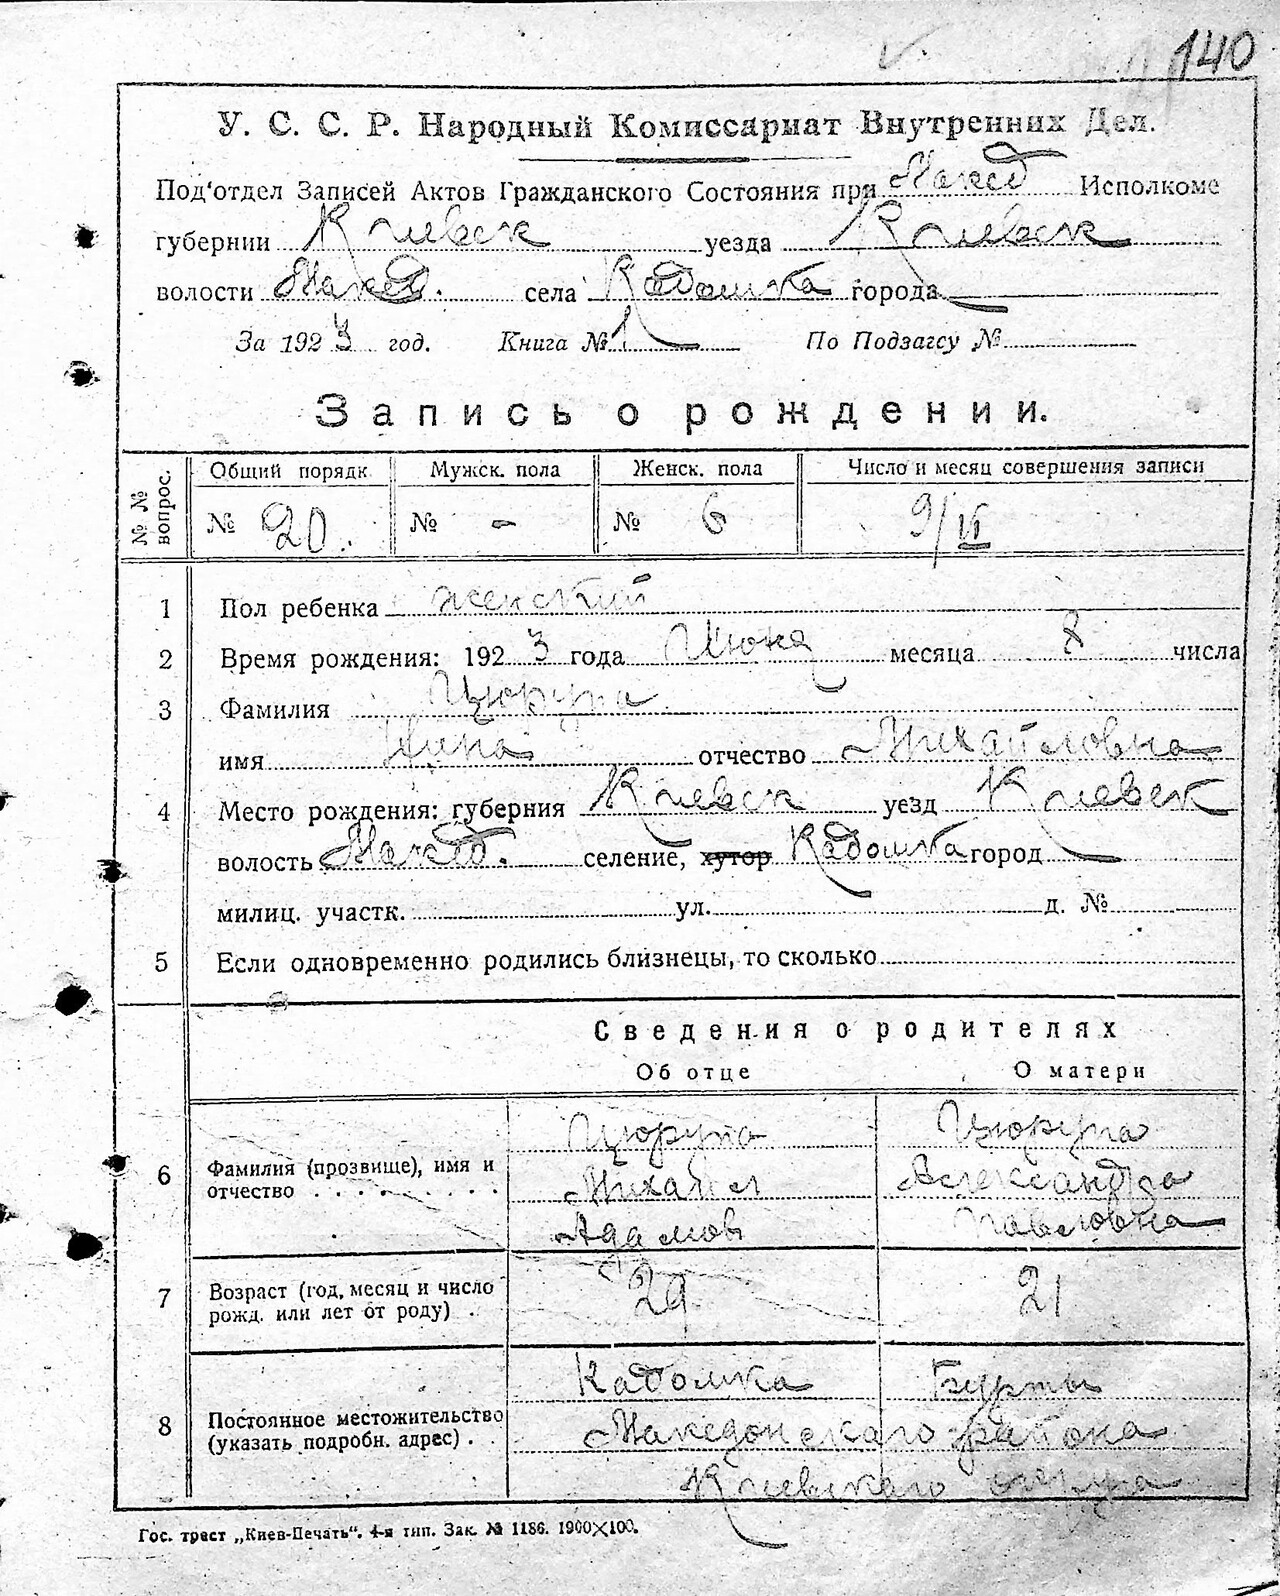 140
У. С. С. Р. Народный Комиссариат Внутренних Дел.
Под'отдел Записей Актов Гражданского Состояния при Макед Исполкоме
губернии Киевск уезда Киевск
волости Макед. села Кадомка города
За 1923 год. Книга № 1 По Подзагсу №
Запись о рождении.
№ № вопрос. Общий порядк. Мужск. пола Женск. пола Число и месяц совершения записи
№ 20. № - № 6 9/VI
1 Пол ребенка женский
2 Время рождения: 1923 года Июня месяца 8 числа
3 Фамилия Цюрупа
имя Нина отчество Михайловна
4 Место рождения: губерния Киевск уезд Киевск
волость Макед. селение, хутор Кадомка город
милиц. участк. ул. д. №
5 Если одновременно родились близнецы, то сколько
Сведения о родителях
Об отце О матери
6 Фамилия (прозвище), имя и отчество . . . . . . . . .
Цюрупа Цюрупа
Михаил Александра
Адамов Павловна
7 Возраст (год, месяц и число рожд. или лет от роду) .
29 21
8 Постоянное местожительство (указать подробн. адрес) .
Кадомка Бурты
Македонского района
Киевского округа
Гос. трест „Киев-Печать“. 4-я тип. Зак. № 1186. 1900×100.